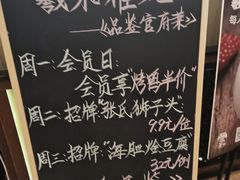 《品鉴官府菜》
周一:会员日:
会员享"烤鸭半价"
周二:招牌"张氏狮子头"
9.9元/位
周三:招牌:"海胆烩豆腐"
32元/例